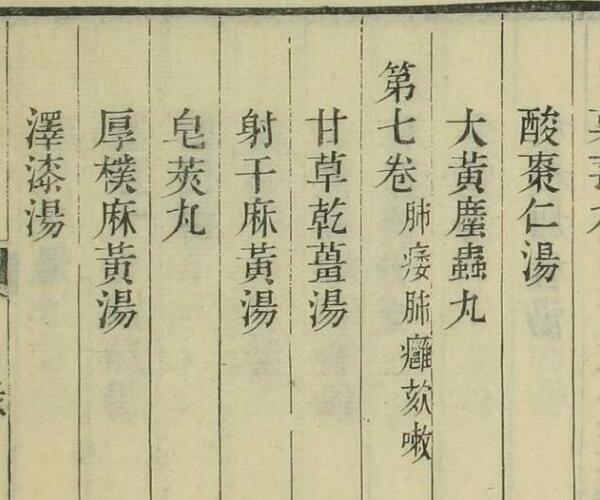 酸棗仁湯
大黃塵蟲丸
第七卷 肺痿肺癰欬嗽
甘草乾薑湯
射干麻黃湯
皂莢丸
厚樸麻黃湯
澤漆湯